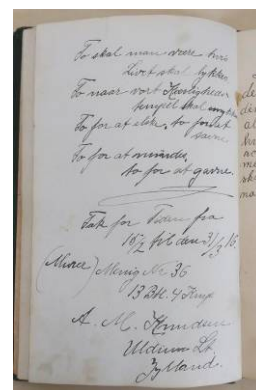 To skal man være hvis
Livet skal lykkes
To naar vort Kærligheds
tempel skal smykkes
To for at elske, to for at
savne
To for at mindes,
to for at gavne.
Tak for Tiden fra
til den 31/3 16.
(Minee) Menig Nr 36
13 Btl. 4 Komp
A. M. Knudsen
Uldum St.
Jylland.